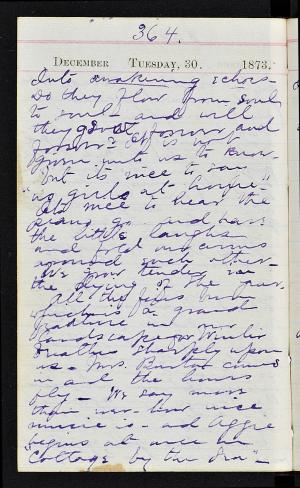 364.
December Tuesday, 30. 1873.
Into awakening echoes
Do they flow from soul
to soul - and will
they grow forever and
forever? It is not
given unto us to know
but it is nice to say
"us girls at home"
It is nice to hear the
piano go and hear
the little laughs
and fold our arms
around each other -
We grow tender in
the dying of the
All the
which is a grand
feature in our
landscape our Winter
breathes sharply upon
us - Mrs. Burton comes
in and the hours
fly - We say more
than ever how nice
music is - and Aggie
begins at once on
"Cottage by the Sea" -